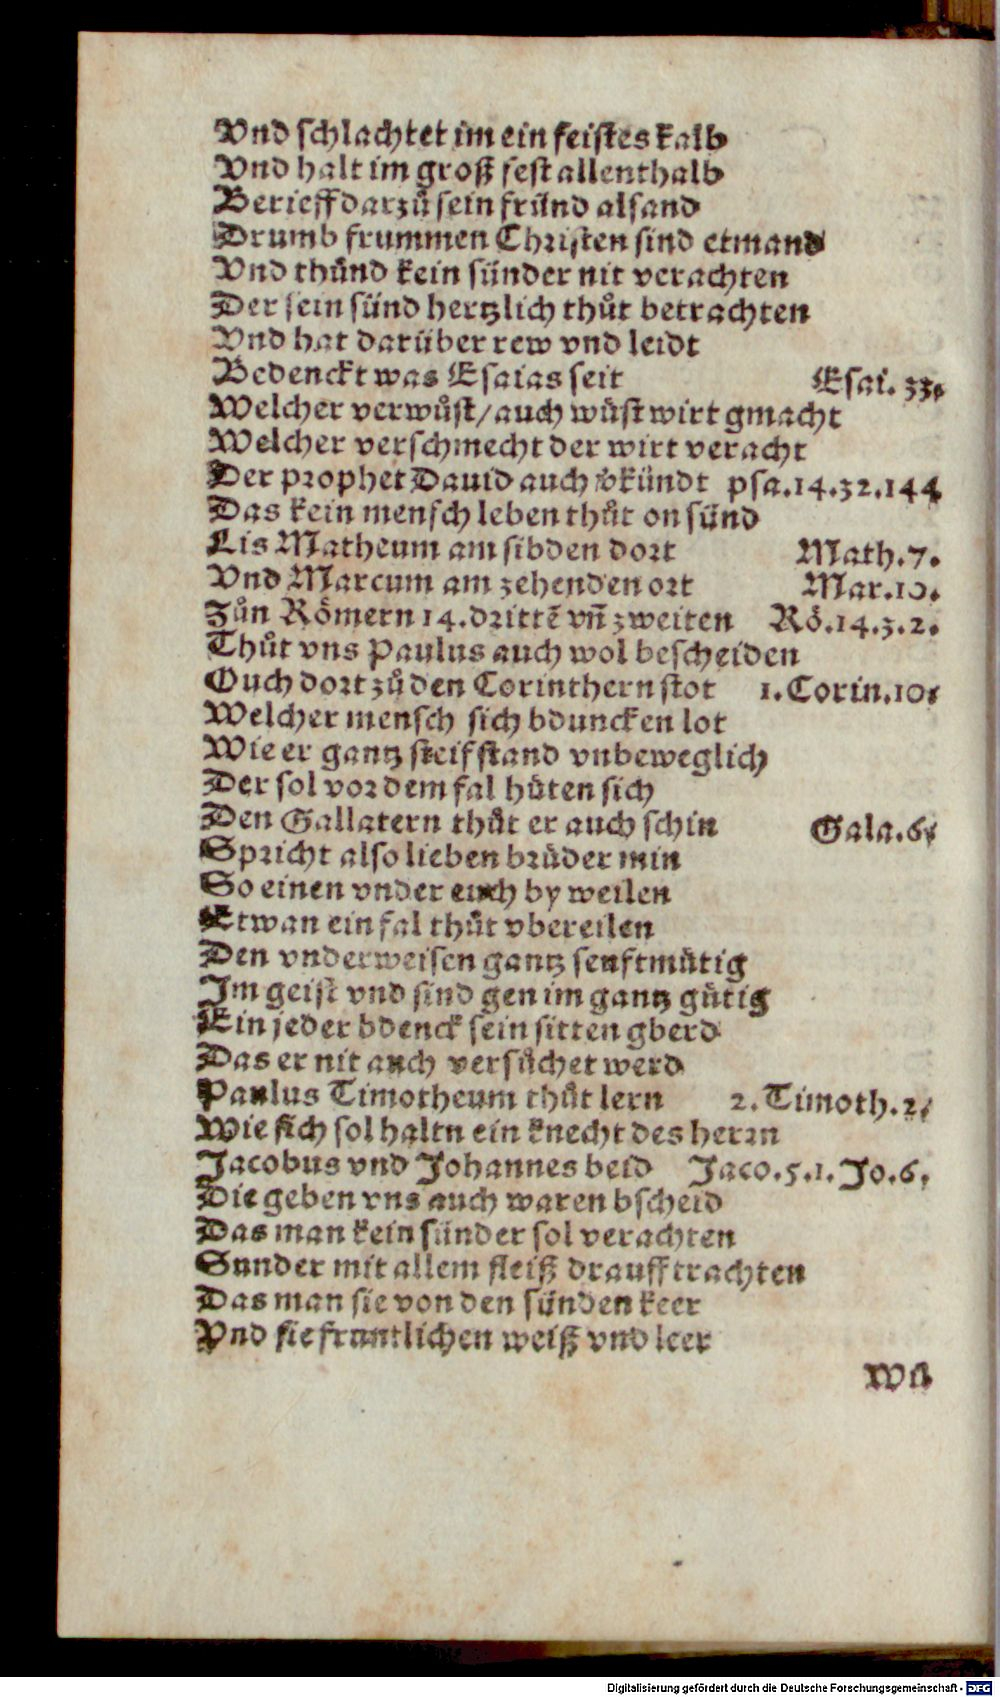 Vnd schlachtet im ein feistes kalb
Vnd halt im groß fest allenthalb
Berieff darzů sein fründ alsand
Drumb frummen Christen sind etmand
Vnd thůnd kein sünder nit verachten
Der sein sünd hertzlich thůt betrachten
Vnd hat darüber rew vnd leidt
Bedenckt was Esaias seit Esai. 33.
Welcher verwůst/auch wůst wirt gmacht
Welcher verschmecht der wirt veracht
Der prophet Dauid auch vkündt psa.14.32.144
Das kein mensch leben thůt on sünd
Lis Matheum am sibden dort Math.7.
Vnd Marcum am zehenden ort Mar.10.
Zůn Römern 14. drittē vn̄ zweiten Rö.14.3.2.
Thůt vns Paulus auch wol bescheiden
Ouch dort zů den Corinthern stot 1.Corin.10.
Welcher mensch sich bduncken lot
Wie er gantz steif stand vnbeweglich
Der sol vor dem fal hůten sich
Den Gallatern thůt er auch schin Gala.6.
Spricht also lieben brůder min
So einen vnder euch by weilen
Etwan ein fal thůt vbereilen
Den vnderweisen gantz senftmůtig
Im geist vnd sind gen im gantz gůtig
Ein jeder bdenck sein sitten gberd
Das er nit auch versůchet werd
Paulus Timotheum thůt lern 2. Timoth.2.
Wie sich sol haltn ein knecht des herrn
Jacobus vnd Johannes beid Jaco.5.1.Jo.6.
Die geben vns auch waren bscheid
Das man kein sünder sol verachten
Sunder mit allem fleiß drauff trachten
Das man sie von den sünden keer
Vnd sie fruntlichen weiß vnd leer
Digitalisierung gefördert durch die Deutsche Forschungsgemeinschaft - DFG